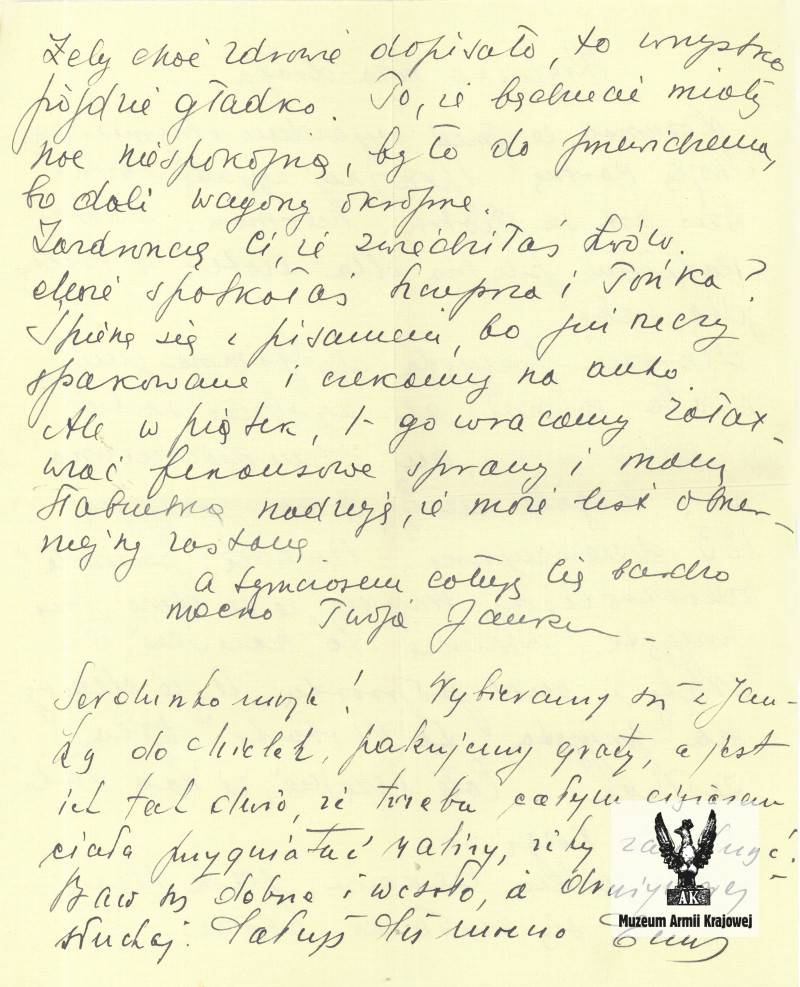 Żeby choć zdrowie dopisało, to wszystko
pójdzie gładko. To, że będziecie miały
noc niespokojną, było do przewidzenia,
bo dali wagony okropne.
Zazdroszczę Ci, że zwiedziłaś Lwów.
Może spotkałaś Szczepcia i Tońka?
Śpieszę się z pisaniem, bo już rzeczy
spakowane i czekamy na auto.
Ale w piątek, 1-go wracamy załat-
wiać finansowe sprawy i mamy
słabiutką nadzieję, że może list
zastanę
A tymczasem całuję Cię bardzo
mocno Twoja Janka
Serduszko moje! Wybieramy się z Jan-
ką do Chełch, pakujemy graty, a jest
ich tak dużo, że trzeba całym ciężarem
ciała przygniatać walizy, żeby
Baw się dobrze i wesoło, a
słuchaj. Całuję Cię mocno
AK
Muzeum Armii Krajowej